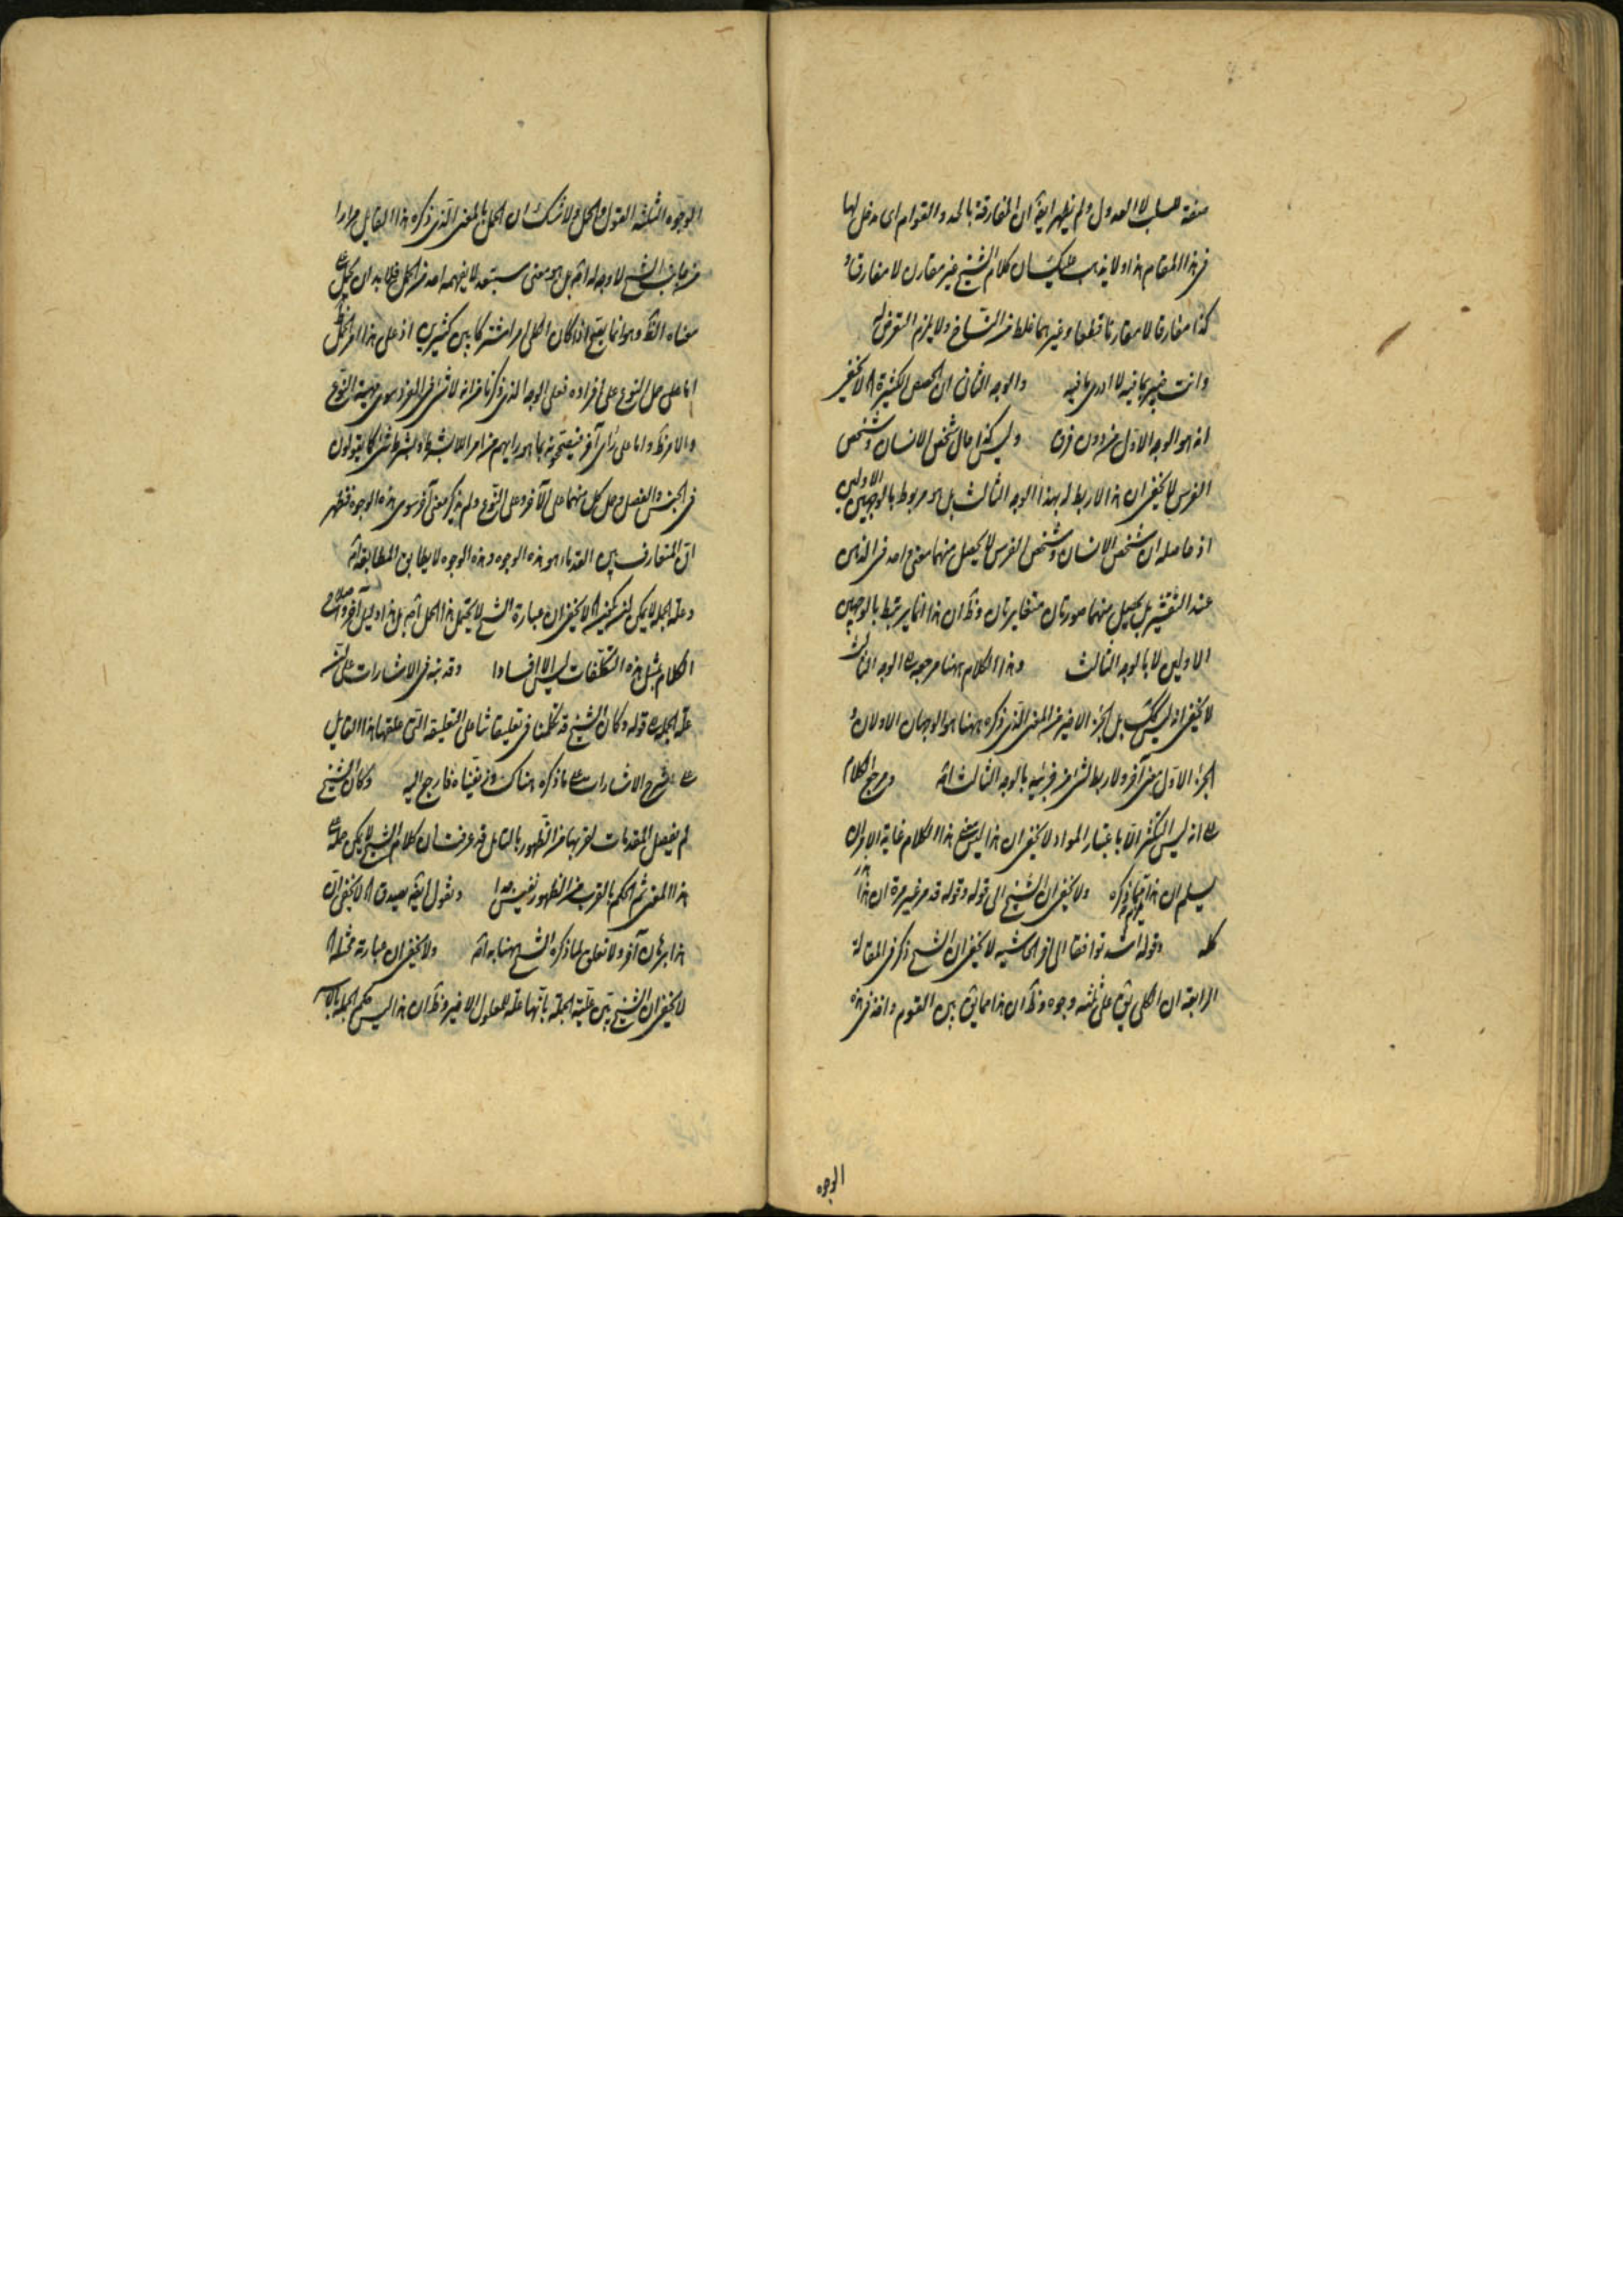 صفة للسلب لا العدول ولم يظهر ايضا ان المفارقة بالحد والقوام اى مدخل لها
فى هذا المقام هذا ولا يذهب عليك ان كلام الشيخ غير مقارن لا مفارق و
كذا مفارقا لا مقارنا قطعا وغيرهما غلط من النساخ ولا يلزم التعرض له
وانت خبير بما فيه لا ادرى ما فيه والوجه الثانى ان الحصص الكثيرة لا يخفى
انه هو الوجه الاول من دون فرق وليس كذا حال شخص الانسان وشخص
الفرس لا يخفى ان هذا لا ربط له بهذا الوجه الثالث بل هو مربوط بالوجهين الاولين
اذ حاصله ان شخص الانسان وشخص الفرس لا يحصل منهما معنى واحد فى الذهن
عند التقشير بل يحصل منهما صورتان متغايرتان وظ ان هذا انما يرتبط بالوجهين
الاولين لا بالوجه الثالث وهذا الكلام ههنا مرجوه الوجه الثالث
لا يخفى انه ليس كك بل الجزء الاخير من المعنى الذى ذكره ههنا هو الوجهان الاولان و
الجزء الاول معنى آخر ولا ربط لشئ من جزئيه بالوجه الثالث اصلا ومرجع الكلام
الى انه ليس التكثر الا باعتبار المواد لا يخفى ان هذا ليس هذا الكلام غاية الامر ان
يسلم ان هذا مما ذكره ولا يخفى ان الشيخ الى قوله وقوله قد مر غير مرة ان هذا
كله وقوله اشد توافقا الى آخر الحاشيه لا يخفى ان الشيخ ذكر فى المقالة
الرابعة ان الكلى يق على ثلثه وجوه وظ ان هذا مما يق بين القوم واخذ فى هذه
الوجوه
الوجوه الثلثة القول والحمل ولا شك ان الحمل بالمعنى الذى ذكره هذا القايل مرارا
من جانب الشيخ لا وجه له اصلا بل هو معنى مستبعد لا يفهمه احد من الحمل فلا بد ان يحمل على
معناه الظ وهو انما يصح اذا كان الكلى امرا مشتركا بين كثيرين اذ على هذا امر الحمل ظ
اما على حمل النوع على افراده فعلى الوجه الذى ذكرنا من انه لا شئ فى الفرد سوى مهية النوع
والامر ظ واما على رأى آخر فيصححونه بما هو رايهم من امر اللا بشرط وبشرط شئ كما يقولون
فى الجنس والفصل وحمل كل منهما على الآخر وعلى النوع ولم يذكر معنى آخر سوى هذه الوجوه فظهر
ان المتعارف بين القدماء هو هذه الوجوه وهذه الوجوه لا يطابق المطابقة اصلا
وعلة الجملة لا يمكن ان يكون لا يخفى ان عبارة الشيخ لا يحتمل هذا الحمل اصلا بل هذا دليل آخر واصلاح
الكلام بمثل هذه التكلفات ليس الا افسادا وقد بنه فى الاشارات على انه
علة الجملة قوله وكان الشيخ قد تكلمنا فى تعليقاتنا على التعليقة التى علقها هذا القايل
على شرح الاشارات على ما ذكره هناك وزيفناه فارجع اليه وكان الشيخ
لم يفصل المقدمات لقربها من الظهور بالتامل قد عرفت ان كلام الشيخ لا يمكن حمله على
هذا المعنى ثم الحكم بالقرب من الظهور نفيس جدا ونقول ايضا يصدق لا يخفى ان
هذا برهان آخر ولا تعلق لما ذكره الشيخ ههنا به اصلا ولا يخفى ان عبارته مختلة
لا يخفى ان الشيخ بين علية الجملة بانها علة للمعلول الاخير وظ ان هذا ليس حكم الجملة بالاسر